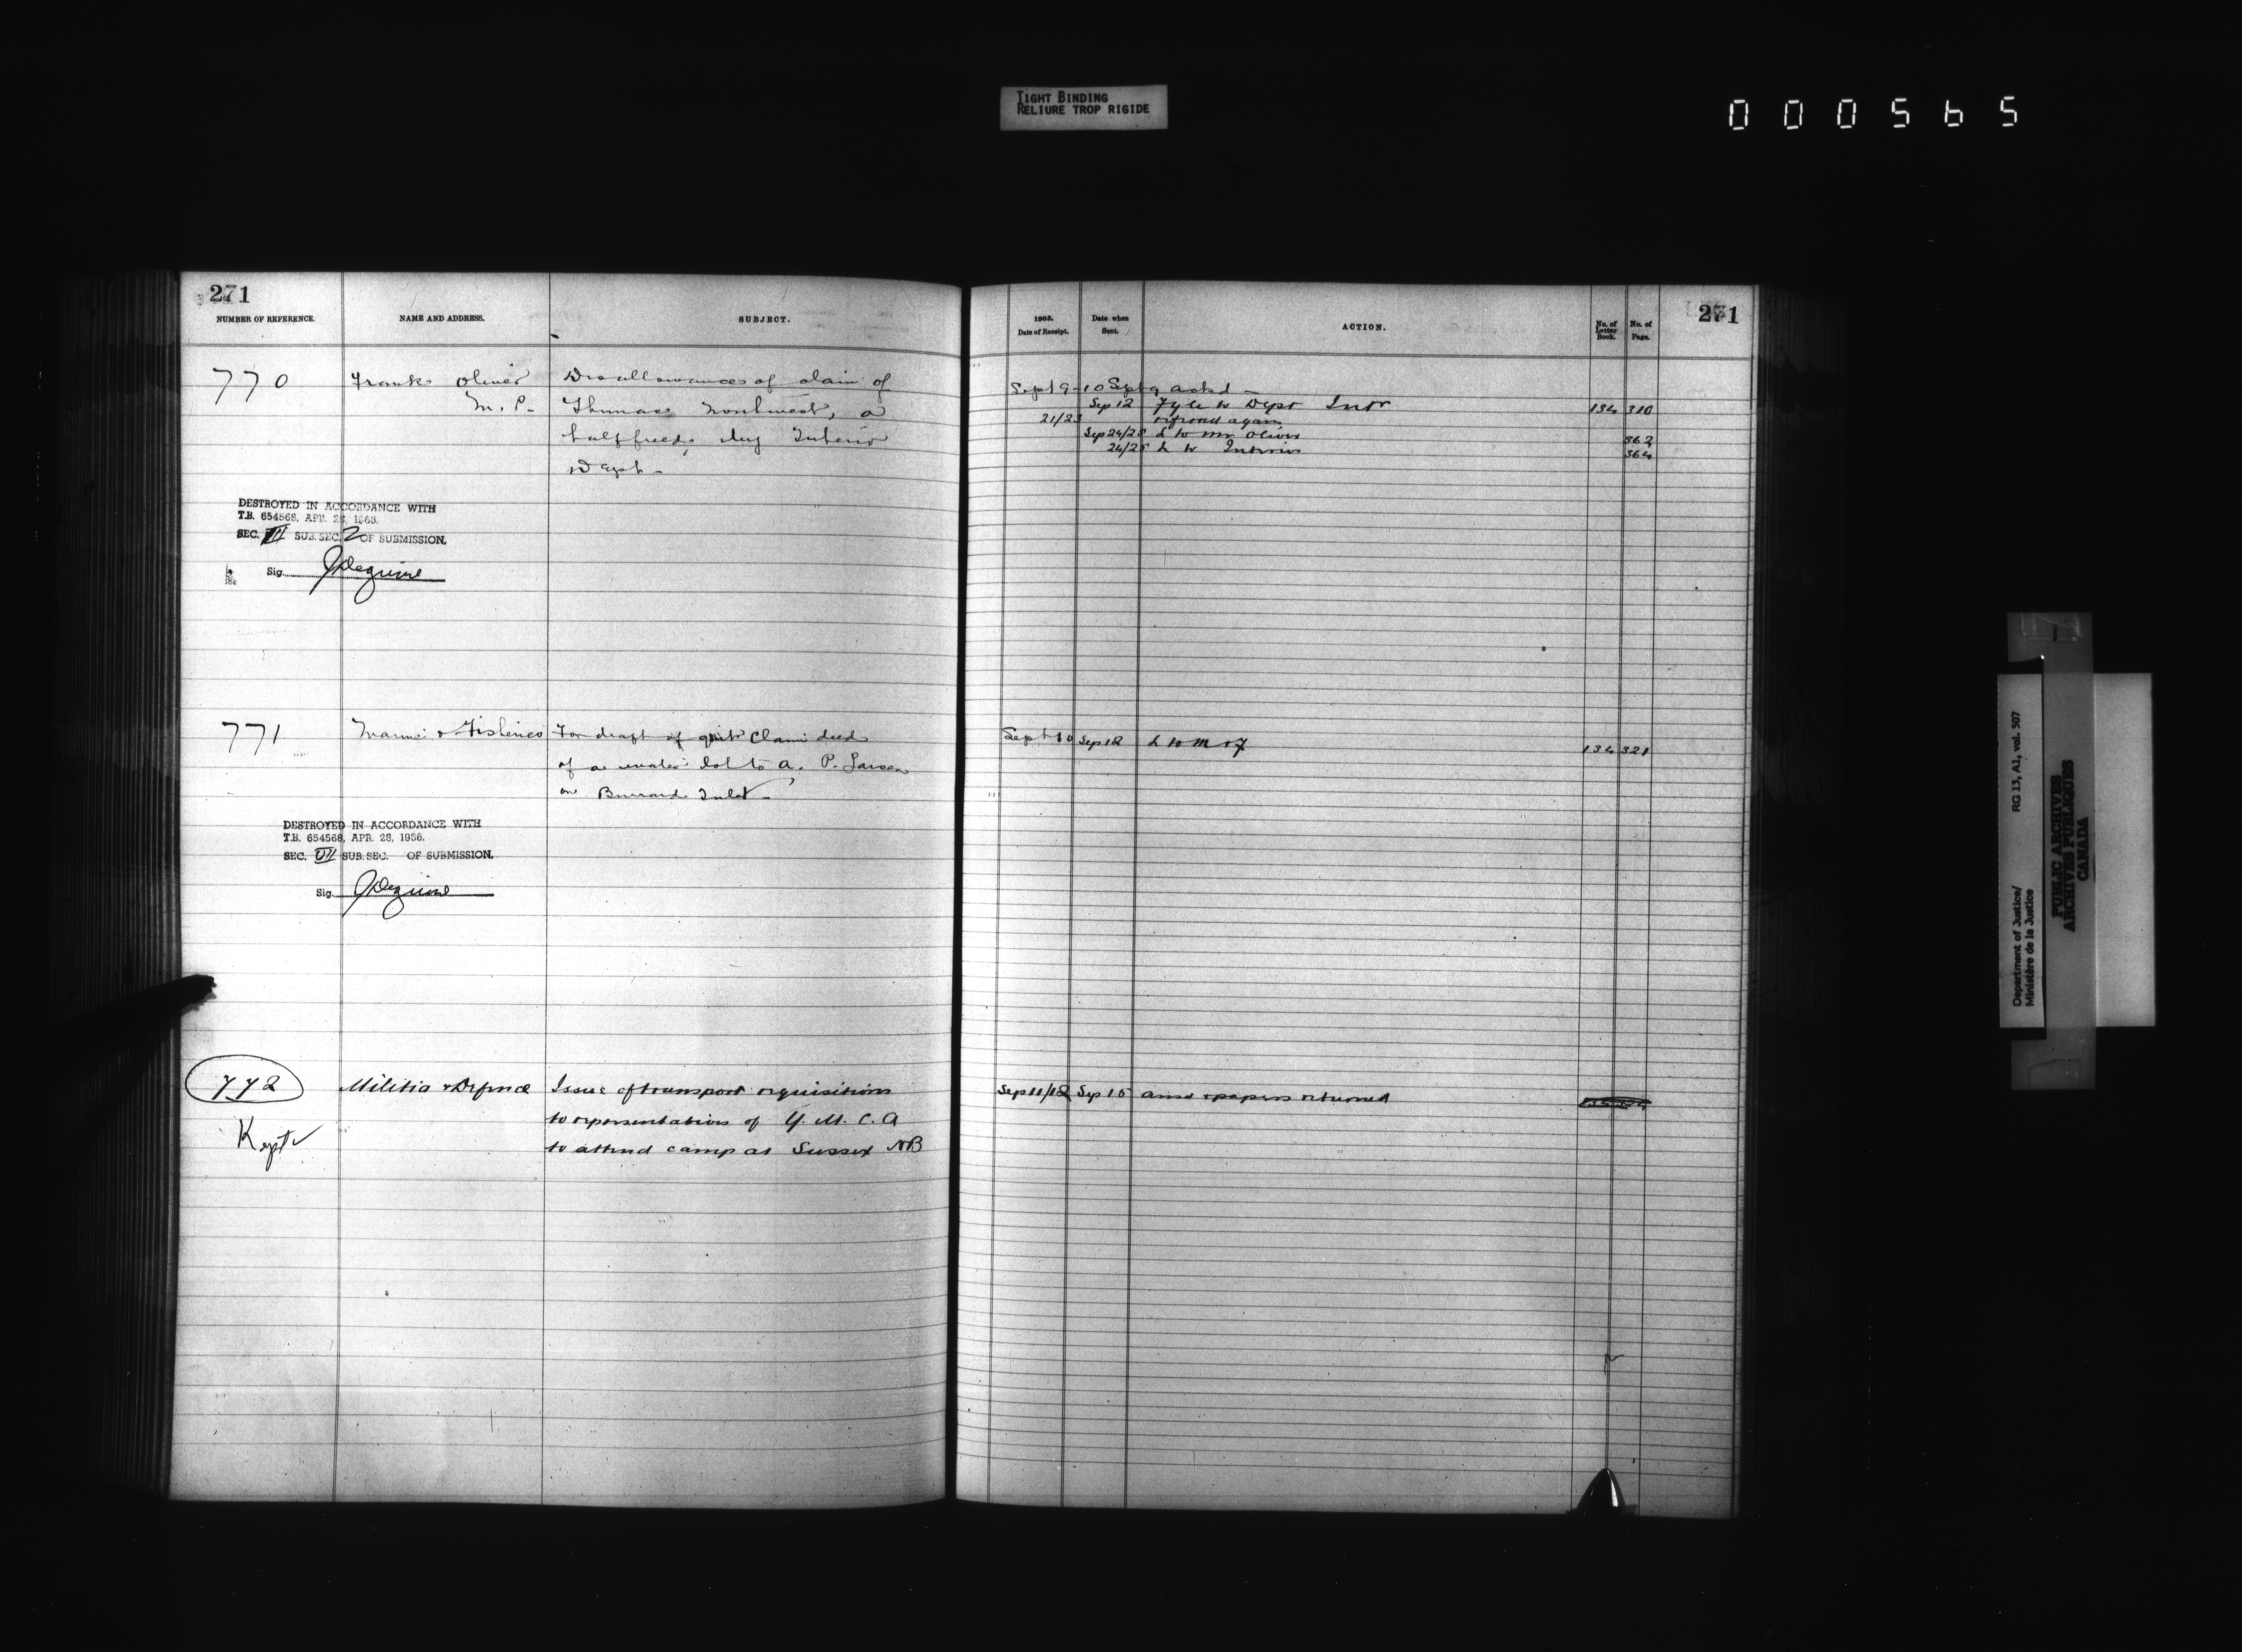 TIGHT BINDING
RELIURE TROP RIGIDE
000565
271
NUMBER OF REFERENCE.
NAME AND ADDRESS.
SUBJECT.
770
Frank Oliver
M.P.
Disallowances of claim of
Thomas Northwest, a
halfbreed, by Interior
Dept-
DESTROYED IN ACCORDANCE WITH
T.B. 654568, APR. 28, 1966.
SEC. VII SUB. SEC. 2 OF SUBMISSION.
Sig.
771
Marine & Fisheries
For draft of quit claim deed
of a water lot to A. P. Larsen
on Burrard Inlet-
DESTROYED IN ACCORDANCE WITH
T.B. 654568, APR. 28, 1966.
SEC. VII SUB. SEC. OF SUBMISSION.
Sig.
772
Kept
Militia & Defence
Issue of transport requisitions
to representatives of Y. M. C. A
to attend camp at Sussex NB
271
1903.
Date of Receipt.
Date when
Sent.
ACTION.
No. of
Letter
Book.
No. of
Page.
Sept 9-10 Sept 9 ackd -
Sep 12 Fyle to Dept Intr 134 310
21/23 refered again
Sep 24/25 L to Mr Oliver 362
24/25 L to Interior 364
Sept 10 Sep 12 L to M & F 134 321
Sep 11/12 Sep 15 ansd & papers returned
Department of Justice/
Ministère de la Justice
RG 13, A1, vol. 507
PUBLIC ARCHIVES
ARCHIVES PUBLIQUES
CANADA